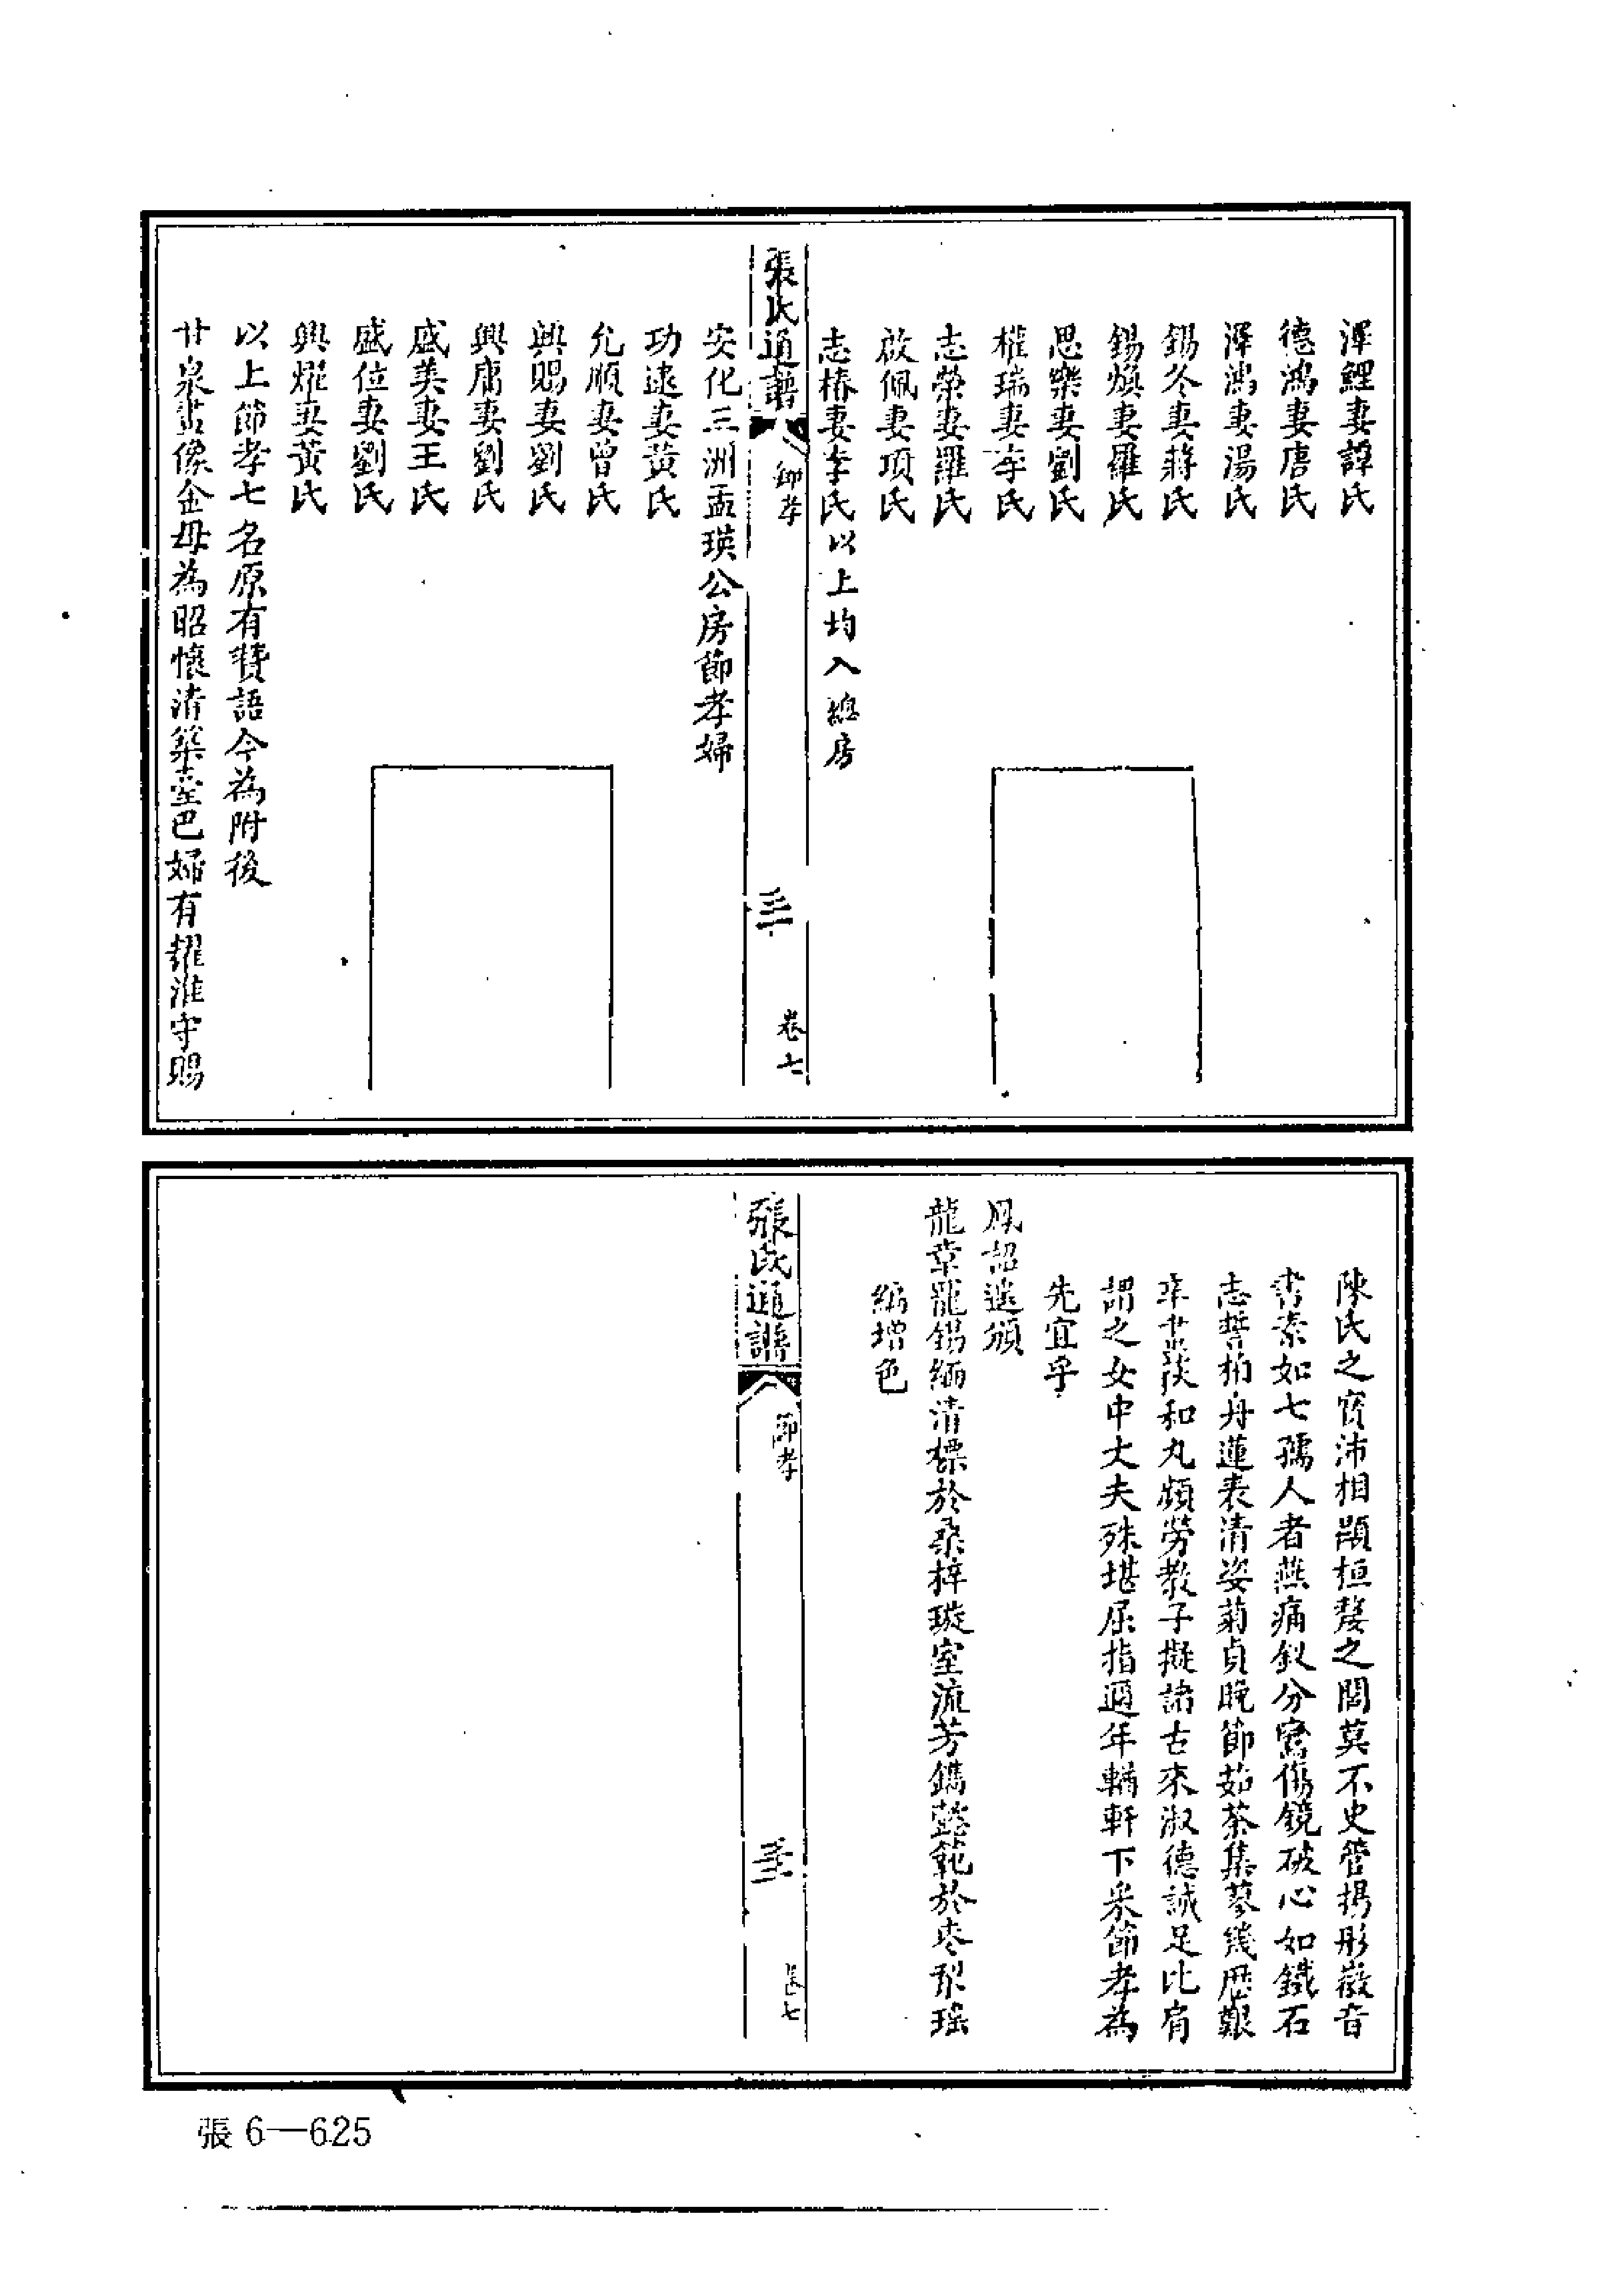 澤鯉妻譚氏
德鴻妻唐氏
澤鴻妻湯氏
錫冬妻蔣氏
錫煥妻羅氏
思樂妻劉氏
權瑞妻李氏
志榮妻羅氏
啟佩妻項氏
志椿妻李氏以上均入總房
張氏通譜
節孝
三
卷七
安化三洲孟瑛公房節孝婦
功逑妻黃氏
允順妻曾氏
興賜妻劉氏
興庸妻劉氏
盛美妻王氏
盛位妻劉氏
興燿妻黃氏
以上節孝七名原有贊語今為附後
甘泉畫像金母為昭懷清築臺巴婦有耀淮守賜
陳氏之賓沛相顯桓嫠之閭莫不史管揚彤徽音
書素如七孺人者燕痛釵分鸞傷鏡破心如鐵石
志誓柏舟蓮表清姿菊貞晚節茹荼集蓼幾歷艱
辛畫荻和丸頗勞教子擬諸古來淑德誠足比肩
謂之女中大夫殊堪屈指邇年輶軒下采節孝為
先宜乎
鳳詔遙頒
龍章寵錫緬清標於桑梓璇室流芳鐫懿範於枣梨瑤
編增色
張氏通譜
節孝
卷七
張6—625